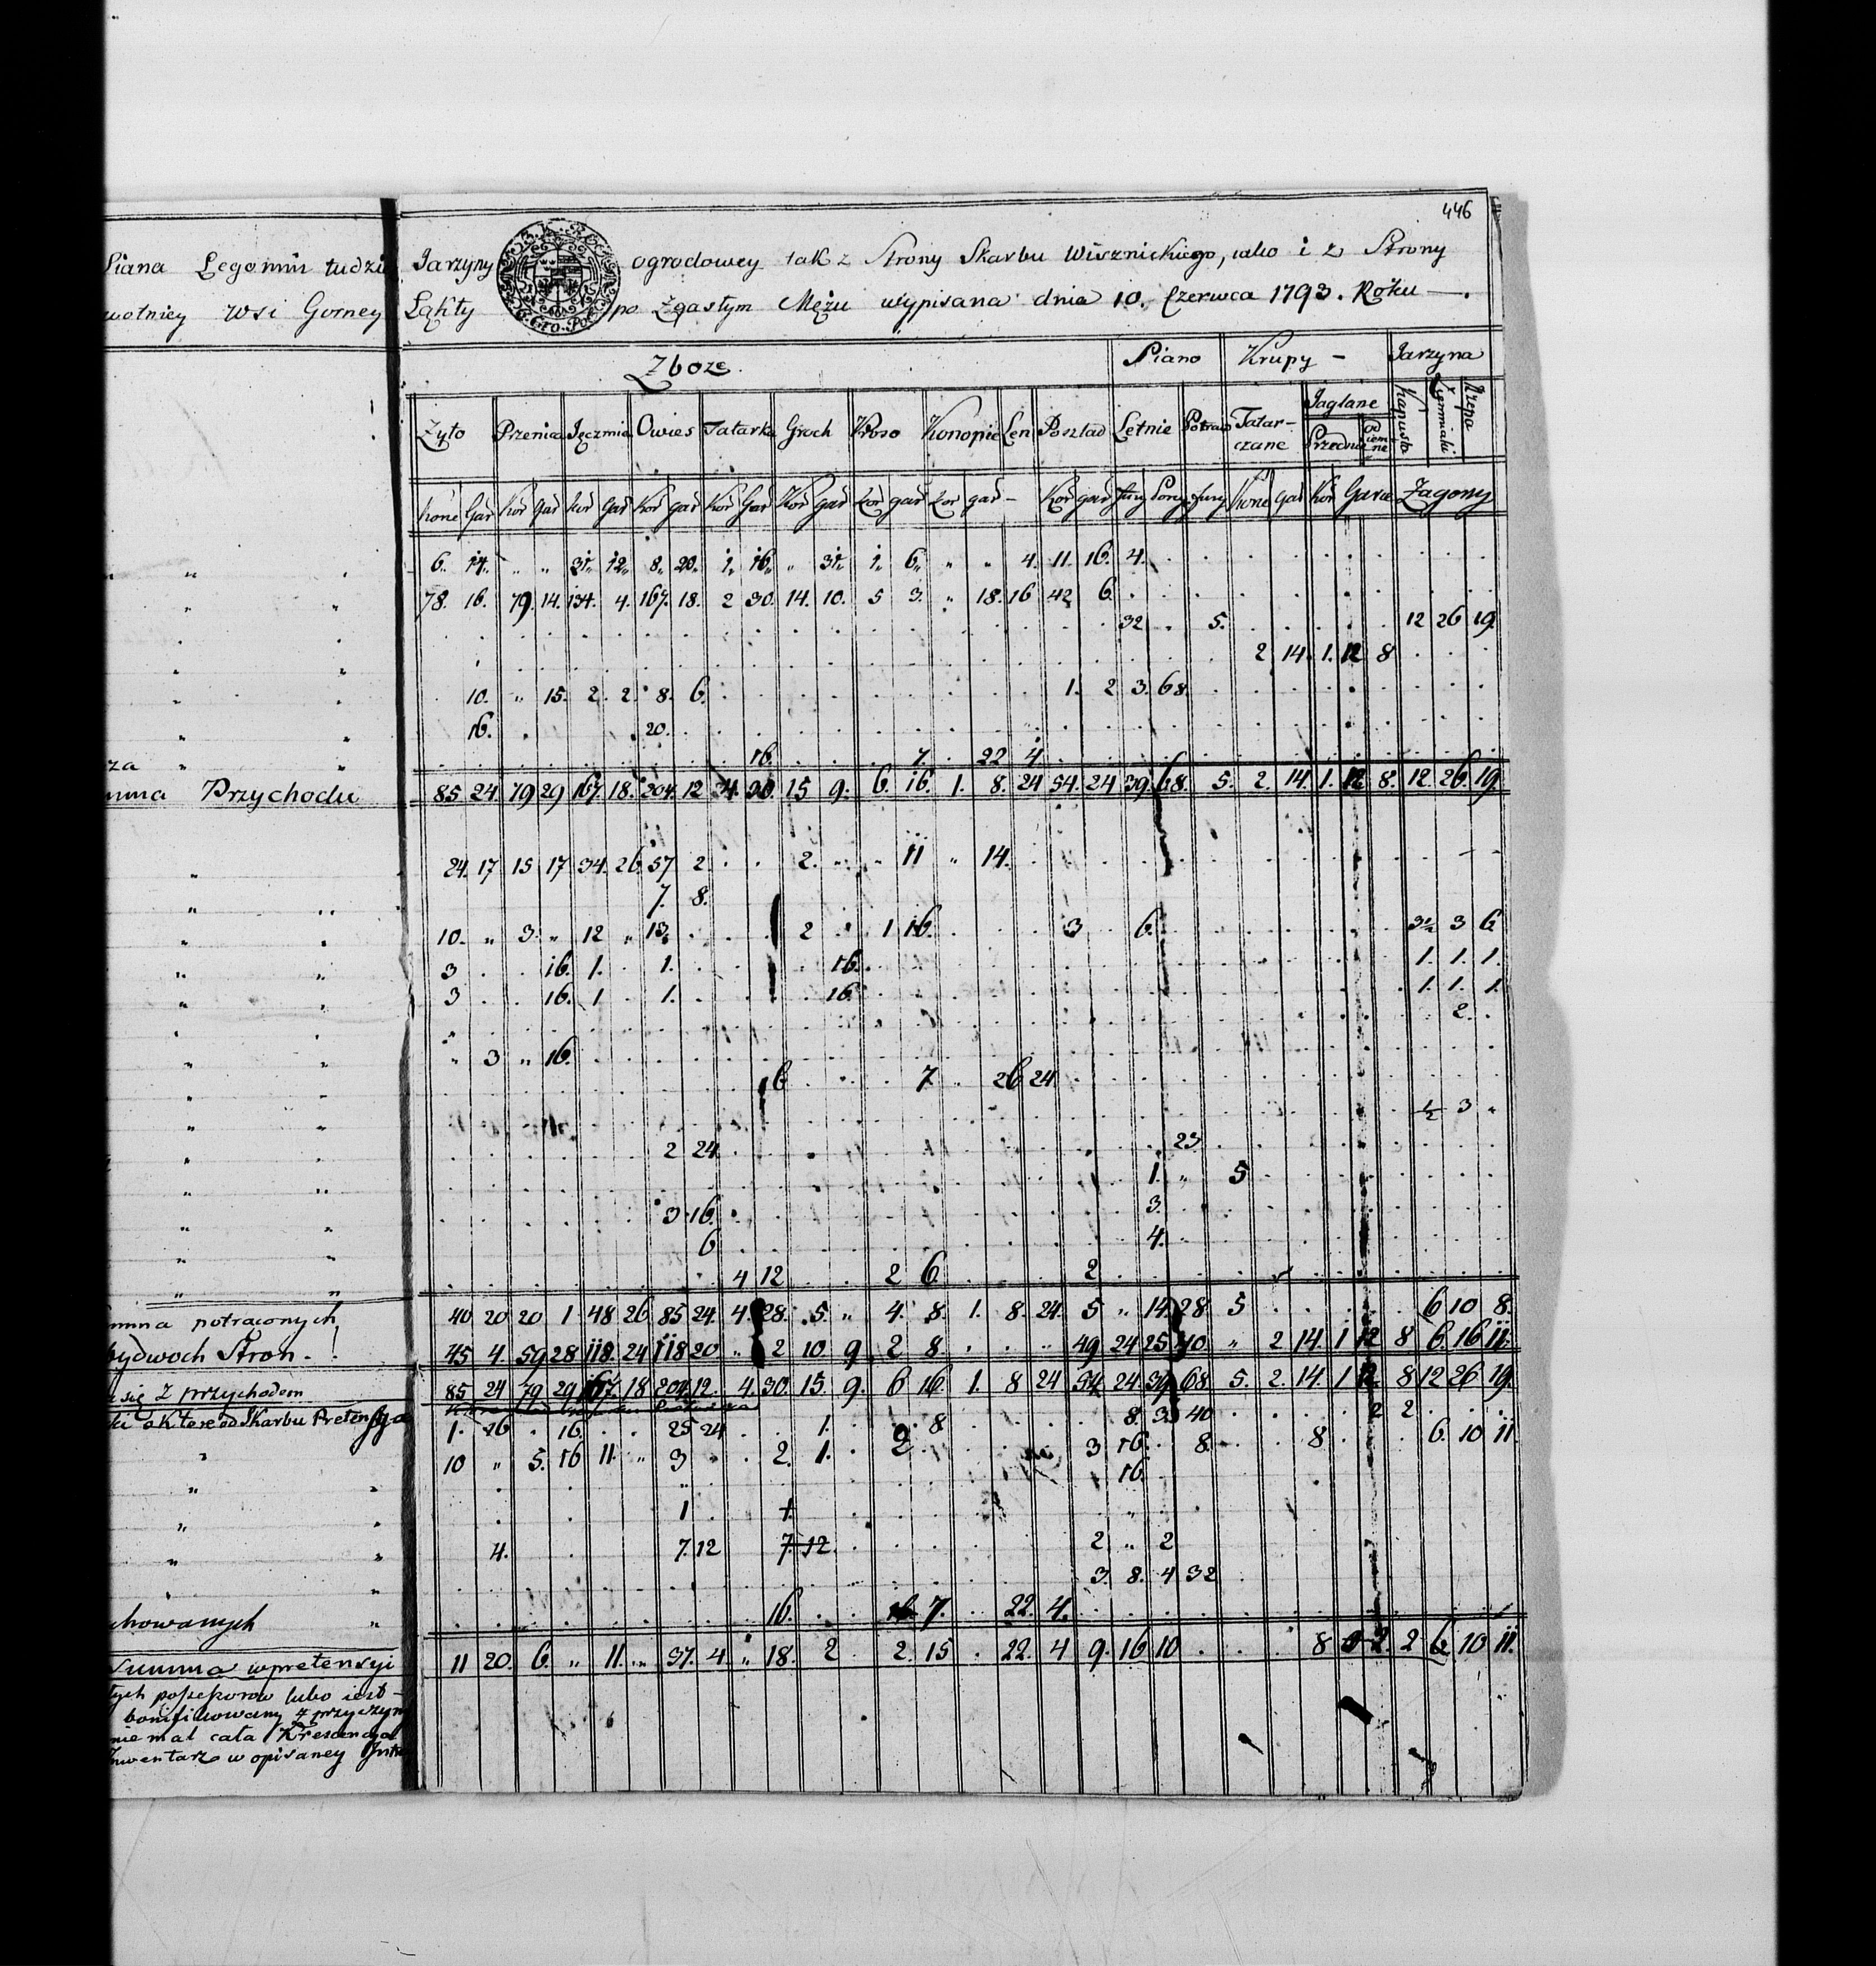 446
Siana Legomin tudzi Jarzyny ogrodowey tak z Strony Skarbu Wisznickiego, iako i z Strony
wotniey wsi Gorney Łąkty po Zgasłym Mężu wypisana dnia 10. Czerwca 1793. Roku —.
Zboze. Siano Krupy – Jarzyna
Zyto Przenica Jęczmie Owies Tatarka Groch Proso Konopie Len Poszlad Letnie Potraw Tatar- czane Jaglane Przednie od Kapusta Rzepa
Kore Gar Kor Gar Kor Gar Kor gar Kor Gar Kor gar Kor gar Kor gar – Kor gar fury fury Kore gar Kor Garce Zagony
6. 14. „ „ 31. 12. 8. 20. 1. 16. „ 31. 1. 6. „ „ 4. 11. 16. 4.
78. 16. 79. 14. 134. 4. 167. 18. 2 30. 14. 10. 5 3. „ 18. 16 42 6.
32 5. 12 26 19.
2 14. 1. 12 8
10. „ 15. 2. 2. 8. 6. 1. 2 3. 68.
16. 20.
za 16. 7. 22 4
mma Przychodu 85 24 79 29 167. 18. 204. 12 30. 15 9. 6. 16. 1. 8. 24 54. 24 39. 68. 5. 2. 14. 1. 12 8. 12. 26. 19.
24. 17 15 17 34. 26. 57 2. 2. 11 „ 14.
7. 8.
10. „ 3. „ 12 „ 13. 2 1 16. 3 6. 3½ 3 6.
3 16. 1. 1. 16. 1. 1. 1.
3 16. 1 1. 16. 1. 1. 1.
2.
„ 3 „ 16.
16 7 26 24
½ 3 „
2 24. 23
1. „ 5
3 16. 3.
6 4.
4 12 2 6. 2
mma potrąconych 40 20 20 1 48 26 85 24. 4. 28. 5. „ 4. 8. 1. 8. 24. 5 „ 14 28. 5 6 10 8.
bydwoch Stron. 45 4. 59 28 118. 24 118 20 „ 2 10 9. 2 8. 49 24 25 40. „ 2 14. 1 12 8 6. 16 11.
się z przychodem 85 24 79 29 167. 18 204. 12. 4. 30. 15. 9. 6 16. 1. 8 24 54. 24. 39. 68. 5. 2. 14. 1 12. 8 12 26 19.
Skarbu Pretensya 1. 26 16. 25 24 1. 8 8. 3 40 2 2.
10 „ 5. 16 11. „ 3 2. 1. 2 3 16. 8. 8 6. 10 11.
16.
1 1.
4. 7. 12 7. 12. 2 „ 2
3. 8. 4 32
chowanych 16. 7. 22. 4.
Summa wpretensyi 11 20. 6. „ 11. „ 37. 4. „ 18. 2 2. 15 22. 4 9. 16 10 8 2. 2 6. 10 11.
tych possesorow lubo iest –
bonifikowany z przyczyn
mal cała Krescencya
Inwentarz w opisaney